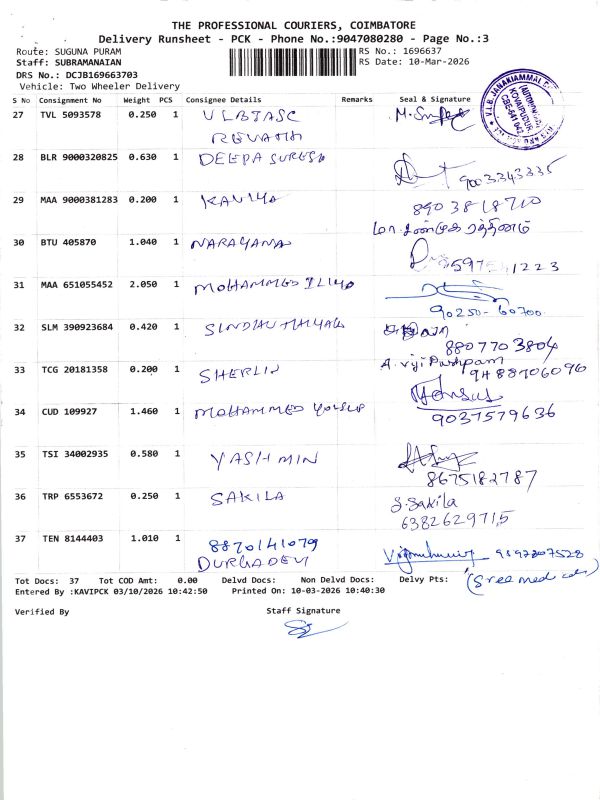 THE PROFESSIONAL COURIERS, COIMBATORE
Delivery Runsheet - PCK - Phone No.:9047080280 - Page No.:3
Route: SUGUNA PURAM RS No.: 1696637
Staff: SUBRAMANAIAN RS Date: 10-Mar-2026
DRS No.: DCJB169663703
Vehicle: Two Wheeler Delivery
S No Consignment No Weight PCS Consignee Details Remarks Seal & Signature
27 TVL 5093578 0.250 1 VLBJASC
REVATHI
28 BLR 9000320825 0.630 1 DEEPA SURESH 9003343335
29 MAA 9000381283 0.200 1 KAVIYA 8903818710
30 BTU 405870 1.040 1 NARAYANA
31 MAA 651055452 2.050 1 MOHAMMED ILIYAS
90250-60700
32 SLM 390923684 0.420 1
8807703804
33 TCG 20181358 0.200 1 SHERLIN A. Viji Pushpam
9488706096
34 CUD 109927 1.460 1 MOHAMMED YOUSUF
9037579636
35 TSI 34002935 0.580 1 YASHMIN
8675182787
36 TRP 6553672 0.250 1 SAKILA S. Sakila
6382629715
37 TEN 8144403 1.010 1 8870141079
DURGADEVI
Tot Docs: 37 Tot COD Amt: 0.00 Delvd Docs: Non Delvd Docs: Delvy Pts:
Entered By :KAVIPCK 03/10/2026 10:42:50 Printed On: 10-03-2026 10:40:30
Verified By Staff Signature